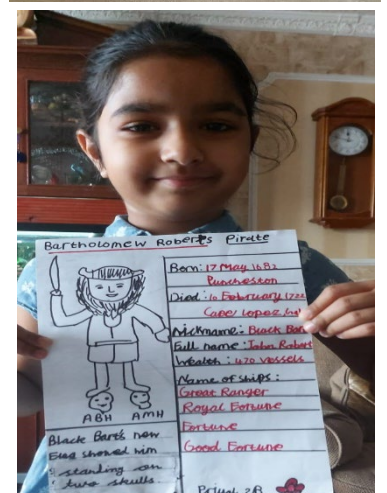 Bartholomew Roberts Pirate
Born: 17 May 1682
Puncheston
Died: 10 February 1722
Cape Lopez
Nickname: Black
Full name: John Robert
Wealth: 470 vessels
Name of ships:
Great Ranger
Royal Fortune
Fortune
Good Fortune
ABH AMH
Black Bart's new
Flag showed him
standing on
two skulls
2B